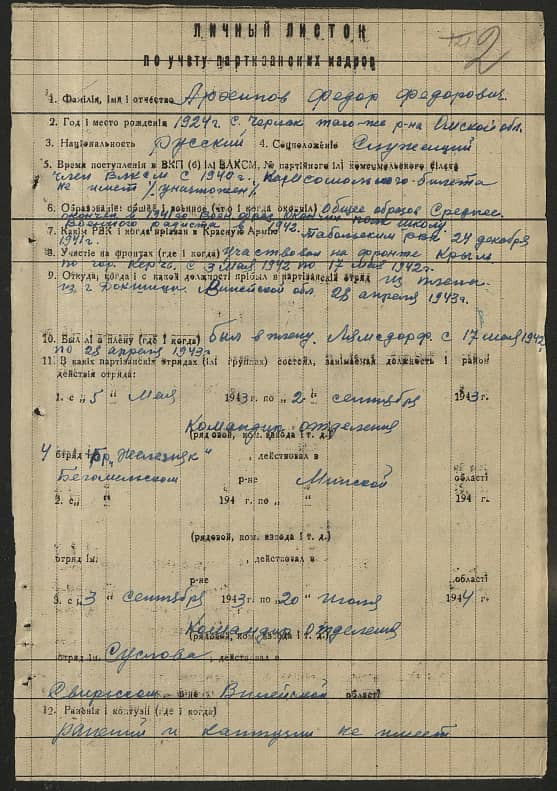 2
ЛИЧНЫЙ ЛИСТОК
по учету партизанских кадров
1. Фамілія, імя і отчество Архипов Федор Федорович.
2. Год і место рожденія 1924 г. с. Черлак того-же р-на Омской обл.
3. Національность Русский 4. Соцположеніе Служащий
5. Время поступленія в ВКП (б) ілі ВЛКСМ, № партійного ілі комсомольского білета
член ВЛКСМ с 1940 г., Комсомольского билета
не имеет (уничтожен)
6. Образованіе: общее і военное (что і когда окончіл) Общее образов Среднее.
окончил в 1941 году Воен. образ. окончил полк школу
Военного радиста в 1942.
7. Какім РВК і когда прізван в Красную Армію Табольским рвк 24 декабря
1941 г.
8. Участіе на фронтах (где і когда) Участвовал на фронте Крым
по гор. Керчь. с 3 мая 1942 по 17 мая 1942 г.
9. Откуда, когда і с какой должності прібыл в партізанскій отряд из плена
из г. Докшицы. Вилейской обл. 28 апреля 1943 г.
10. Был лі в плену (где і когда) был в плену. с 17 мая 1942
по 28 апреля 1943 г.
11. В какіх партізанскіх отрядах (ілі группах) состоял, занімаемая должность і район
действія отряда:
1. с „5“ Мая 1943 г. по „2“ сентября 1943 г.
Командир отделения
(рядовой, ком. взвода і т. д.)
4 отряд бр. „Железняк“, действовал в
Бегомльском р-не Минской області
2. с „ “ 194 г. по „ “ 194 г.
(рядовой, ком. взвода і т. д.)
отряд ім. , действовал в
р-не області
3. с „3“ сентября 1943 г. по „20“ июля 1944 г.
Командир отделения
(рядовой, ком. взвода і т. д.)
отряд ім. Суслова, действовал в
Свирском р-не Вилейской області
12. Раненія і контузіі (где і когда)
ранений и контузии не имеет